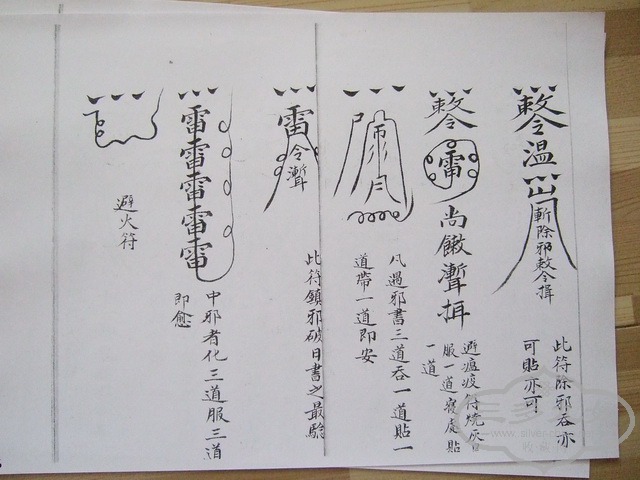 敕令溫
斬除邪敕令揖
此符除邪吞亦
可貼亦可
敕令
雷
尚
避瘟疫符燒灰吞
服一道寢處貼
一道
凡遇邪書三道吞一道貼一
道帶一道即安
雷
令
此符鎮邪破日書之最驗
雷雷雷雷雷
中邪者化三道服三道
即愈
避火符